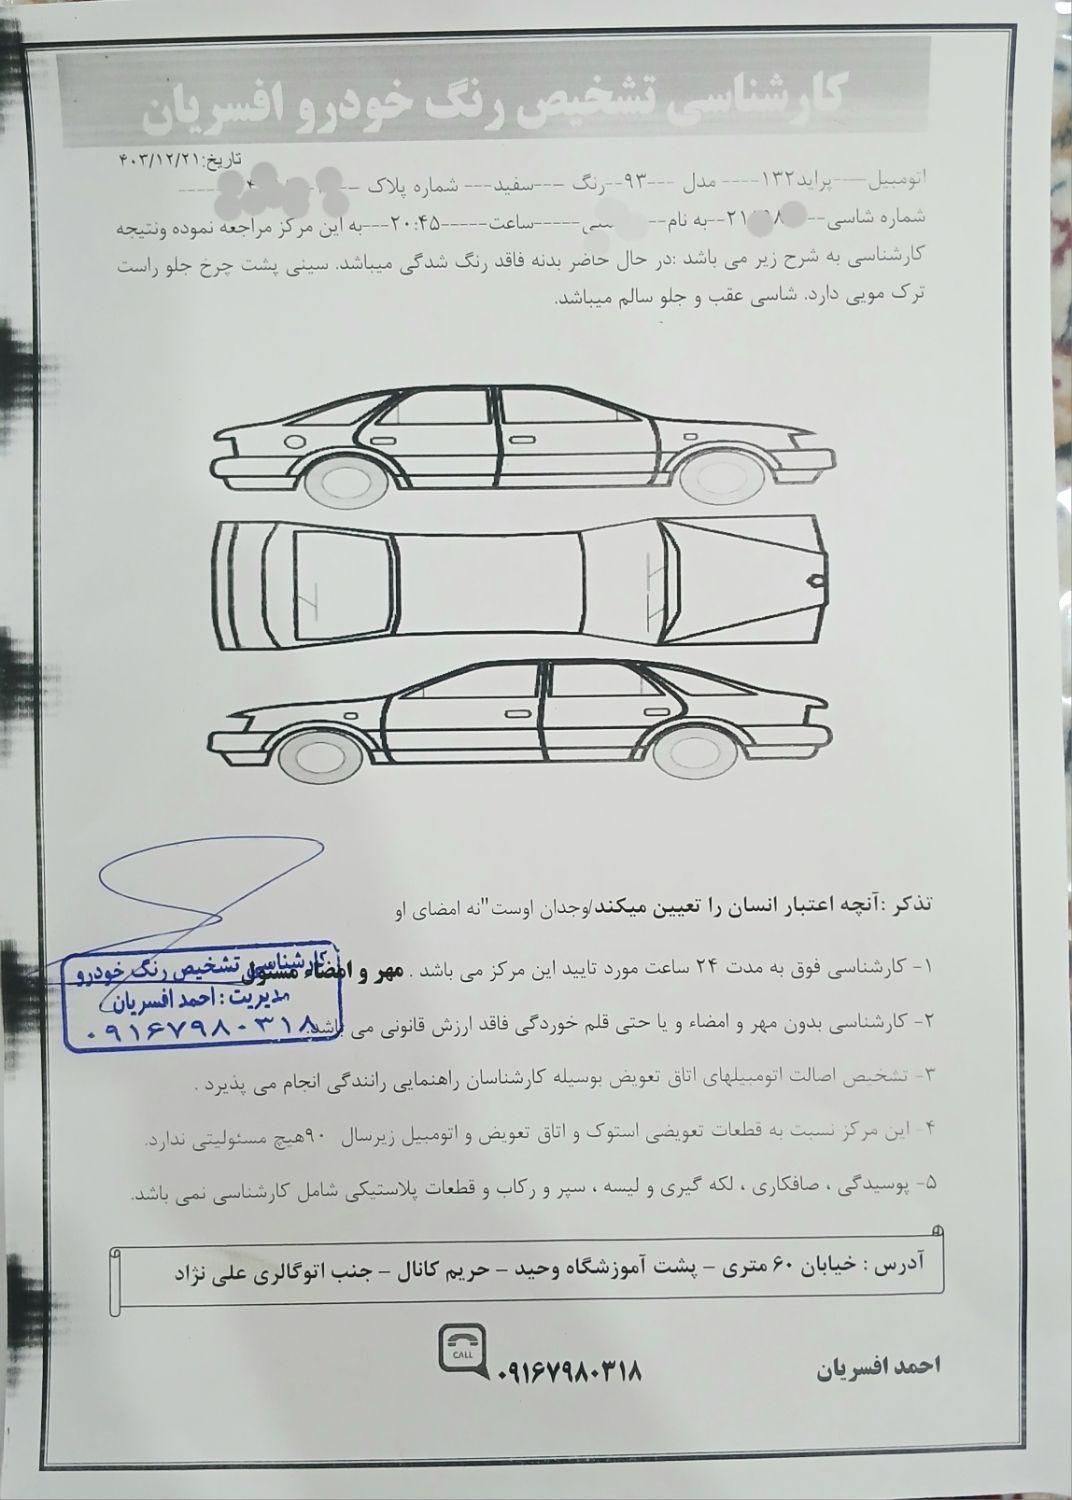 کارشناسی تشخیص رنگ خودرو افسریان
تاریخ:۴۰۳/۱۲/۲۱
اتومبیل----پراید۱۳۲---- مدل ---۹۳--رنگ ---سفید--- شماره پلاک
شماره شاسی-- --به نام-- -----ساعت-----۲۰:۴۵---به این مرکز مراجعه نموده ونتیجه
کارشناسی به شرح زیر می باشد :در حال حاضر بدنه فاقد رنگ شدگی میباشد. سینی پشت چرخ جلو راست
ترک مویی دارد. شاسی عقب و جلو سالم میباشد.
تذکر :آنچه اعتبار انسان را تعیین میکند/وجدان اوست"نه امضای او
۱- کارشناسی فوق به مدت ۲۴ ساعت مورد تایید این مرکز می باشد . مهر و امضاء مسئول
کارشناسی تشخیص رنگ خودرو
مدیریت : احمد افسریان
۰۹۱۶۷۹۸۰۳۱۸
۲- کارشناسی بدون مهر و امضاء و یا حتی قلم خوردگی فاقد ارزش قانونی می باشد.
۳- تشخیص اصالت اتومبیلهای اتاق تعویض بوسیله کارشناسان راهنمایی رانندگی انجام می پذیرد .
۴- این مرکز نسبت به قطعات تعویضی استوک و اتاق تعویض و اتومبیل زیرسال ۹۰هیچ مسئولیتی ندارد.
۵- پوسیدگی ، صافکاری ، لکه گیری و لیسه ، سپر و رکاب و قطعات پلاستیکی شامل کارشناسی نمی باشد.
آدرس : خیابان ۶۰ متری – پشت آموزشگاه وحید – حریم کانال – جنب اتوگالری علی نژاد
CALL
احمد افسریان ۰۹۱۶۷۹۸۰۳۱۸